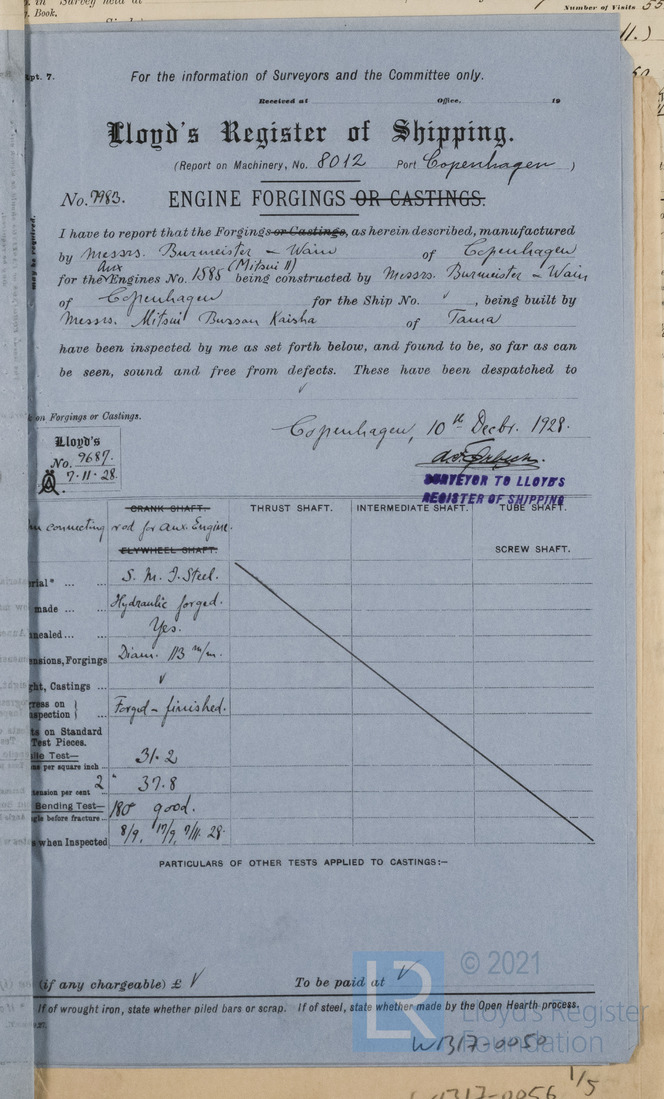 in Survey held at
Book.
Number of Visits 55
11.)
pt. 7.
For the information of Surveyors and the Committee only.
Received at Office, 19
Lloyd's Register of Shipping.
(Report on Machinery, No. 8012 Port Copenhagen )
No. 7983. ENGINE FORGINGS OR CASTINGS.
I have to report that the Forgings or Castings, as herein described, manufactured
by Messrs. Burmeister - Wain of Copenhagen
for the Aux Engines No. 1585 (Mitsui 11) being constructed by Messrs. Burmeister - Wain
of Copenhagen for the Ship No. ✓, being built by
Messrs. Mitsui Bussan Kaisha of Tama
have been inspected by me as set forth below, and found to be, so far as can
be seen, sound and free from defects. These have been despatched to
✓
may be required.
on Forgings or Castings.
Copenhagen, 10th Decbr. 1928.
Lloyd's
No. 9687.
7.11.28.
SURVEYOR TO LLOYD'S
REGISTER OF SHIPPING
CRANK SHAFT. THRUST SHAFT. INTERMEDIATE SHAFT. TUBE SHAFT.
connecting rod for Aux. Engine.
FLYWHEEL SHAFT. SCREW SHAFT.
rial" ... ... S. M. I. Steel.
made ... ... Hydraulic forged.
nealed ... ... Yes.
ensions, Forgings Diam. 113 m/m.
ght, Castings ... ✓
ress on
spection Forged - finished.
ts on Standard
Test Pieces.
ile Test—
per square inch ... 31.2
tension per cent 2" 37.8
Bending Test— 180° good.
gle before fracture ...
when Inspected 8/9, 17/9, 7/11.28.
PARTICULARS OF OTHER TESTS APPLIED TO CASTINGS:—
(if any chargeable) £ ✓ To be paid at ✓
If of wrought iron, state whether piled bars or scrap. If of steel, state whether made by the Open Hearth process.
LR
© 2021
Lloyd's Register
Foundation
W1317-0050
1317-0056 1/5